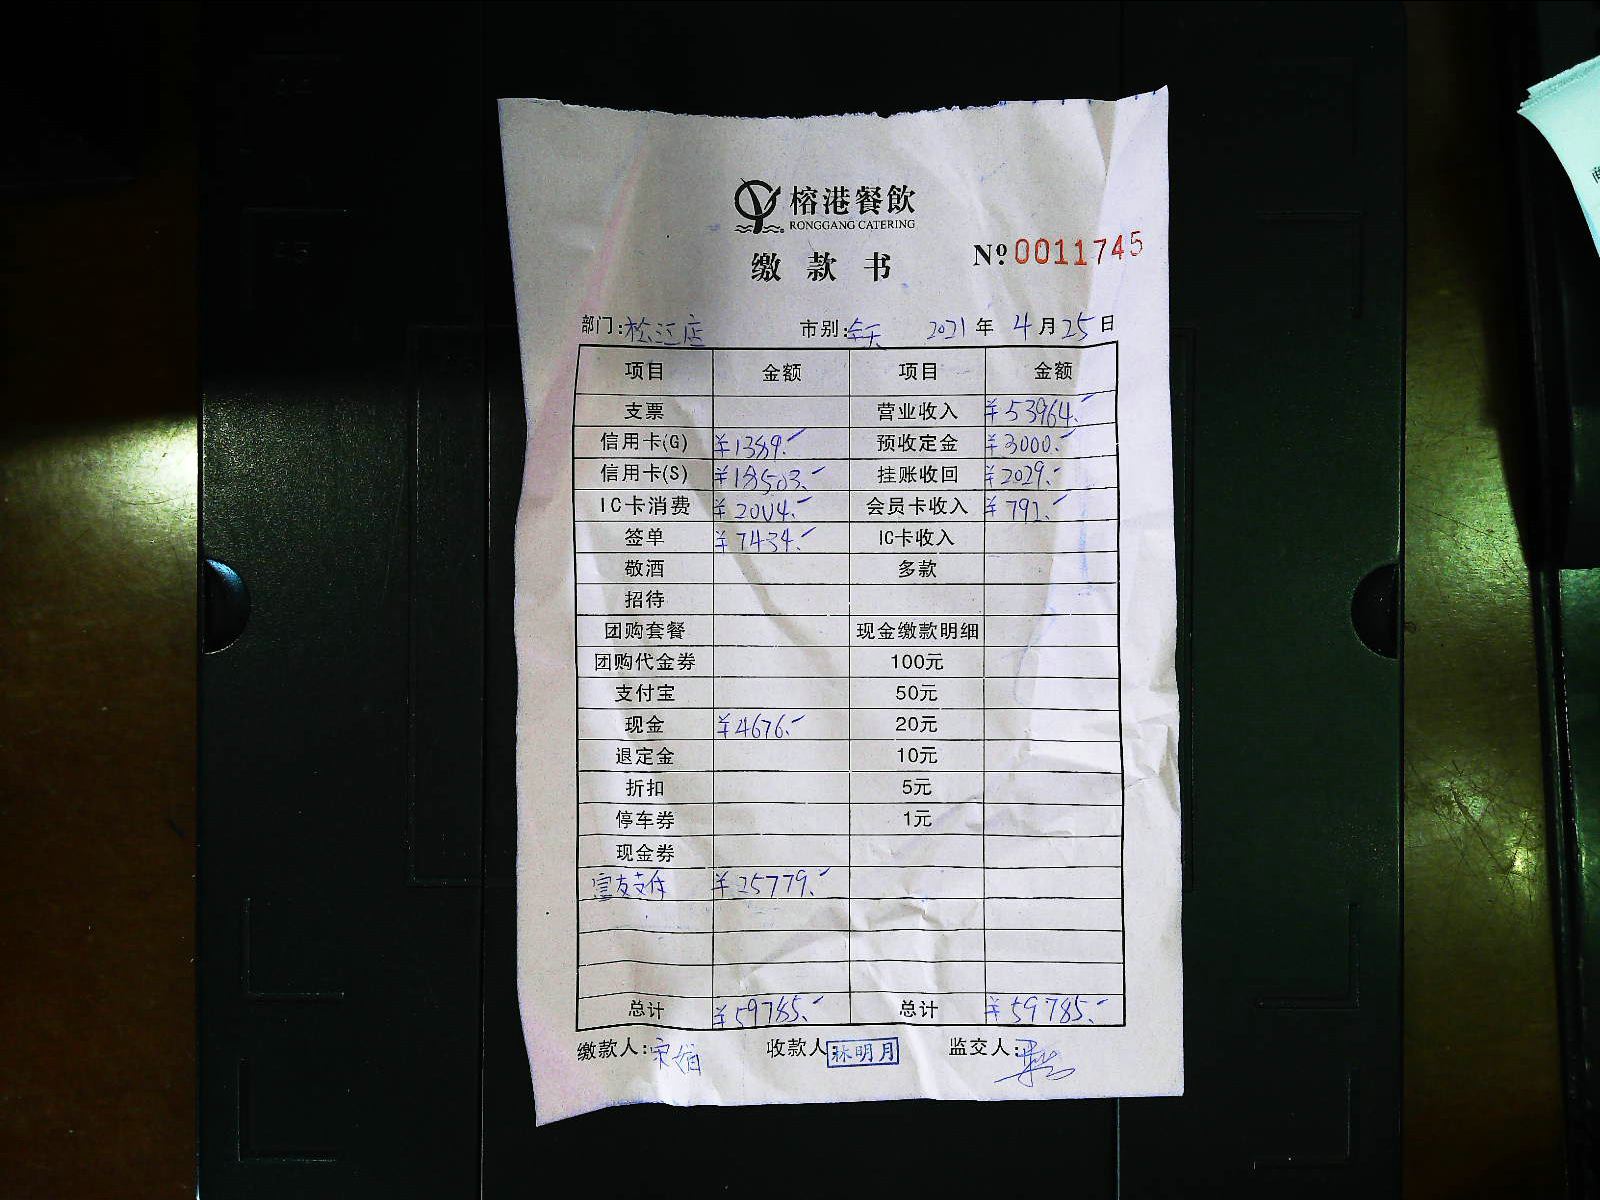 榕港餐飲
RONGGANG CATERING
缴款书
№0011745
部门:松江店 市别:全天 2021年4月25日
项目 金额 项目 金额
支票 营业收入 ¥53964.-
信用卡(G) ¥1389.- 预收定金 ¥3000.-
信用卡(S) ¥18503.- 挂账收回 ¥2029.-
IC卡消费 ¥2004.- 会员卡收入 ¥792.-
签单 ¥7434.- IC卡收入
敬酒 多款
招待
团购套餐 现金缴款明细
团购代金券 100元
支付宝 50元
现金 ¥4676.- 20元
退定金 10元
折扣 5元
停车券 1元
现金券
富友支付 ¥25779.-
总计 ¥59785.- 总计 ¥59785.-
缴款人:宋 收款人 林明月 监交人: